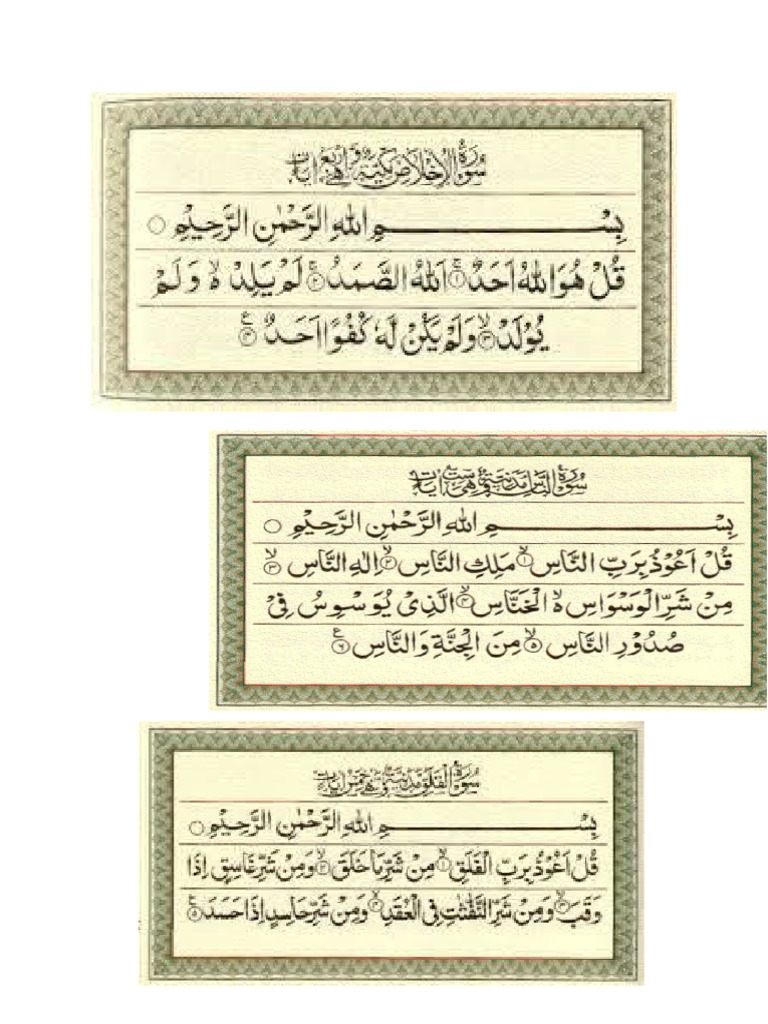 سُوْرَةُ الْاِخْلَاصِ مَكِّيَّةٌ وَّهِىَ اَرْبَعُ اٰيَاتٍ
بِسْمِ اللهِ الرَّحْمٰنِ الرَّحِيْمِ ○
قُلْ هُوَ اللهُ اَحَدٌ ۚ‏﴿۱﴾ اَللهُ الصَّمَدُ ۚ‏﴿۲﴾ لَمْ يَلِدْ ۙ وَلَمْ
يُوْلَدْ ۙ‏﴿۳﴾ وَلَمْ يَكُنْ لَّهٗ كُفُوًا اَحَدٌ ﴿۴﴾
سُوْرَةُ النَّاسِ مَدَنِيَّةٌ وَّهِىَ سِتُّ اٰيَاتٍ
بِسْمِ اللهِ الرَّحْمٰنِ الرَّحِيْمِ ○
قُلْ اَعُوْذُ بِرَبِّ النَّاسِ ۙ‏﴿۱﴾ مَلِكِ النَّاسِ ۙ‏﴿۲﴾ اِلٰهِ النَّاسِ ۙ‏﴿۳﴾
مِنْ شَرِّ الْوَسْوَاسِ ۙ الْخَنَّاسِ ۙ‏﴿۴﴾ الَّذِىْ يُوَسْوِسُ فِىْ
صُدُوْرِ النَّاسِ ۙ‏﴿۵﴾ مِنَ الْجِنَّةِ وَالنَّاسِ ﴿۶﴾
سُوْرَةُ الْفَلَقِ مَدَنِيَّةٌ وَّهِىَ خَمْسُ اٰيَاتٍ
بِسْمِ اللهِ الرَّحْمٰنِ الرَّحِيْمِ ○
قُلْ اَعُوْذُ بِرَبِّ الْفَلَقِ ۙ‏﴿۱﴾ مِنْ شَرِّ مَا خَلَقَ ۙ‏﴿۲﴾ وَمِنْ شَرِّ غَاسِقٍ اِذَا
وَقَبَ ۙ‏﴿۳﴾ وَمِنْ شَرِّ النَّفّٰثٰتِ فِى الْعُقَدِ ۙ‏﴿۴﴾ وَمِنْ شَرِّ حَاسِدٍ اِذَا حَسَدَ ﴿۵﴾